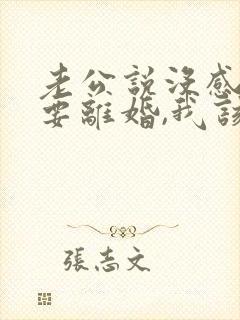 老公說沒感
要離婚,我該
張志文